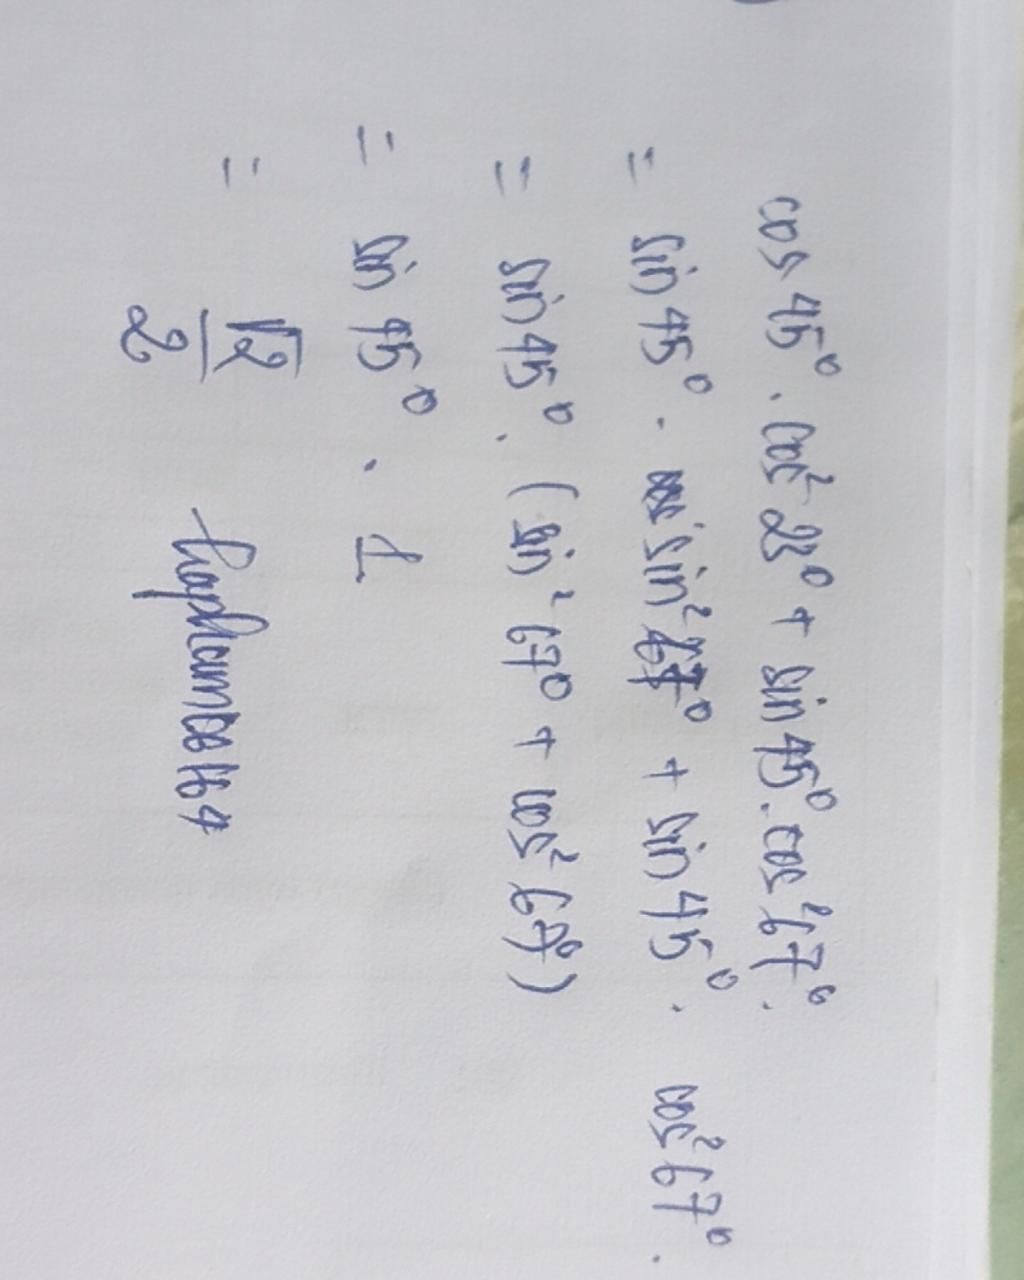 cos 45° . cos² 23° + sin 45° . cos² 67° .
= sin 45° . sin² 67° + sin 45° . cos² 67° .
= sin 45° . (sin² 67° + cos² 67°)
= sin 45° . 1
= √2/2 haphamcos164